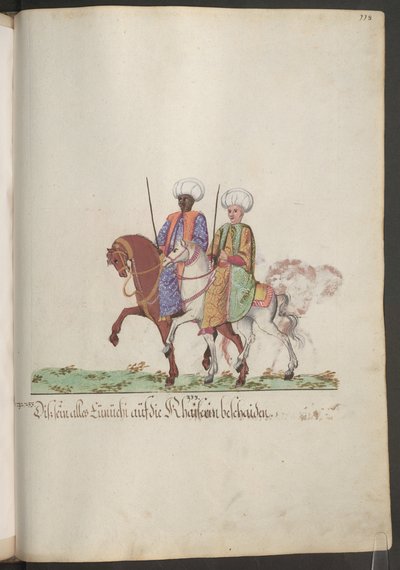 113
177
Diß sein alles Eunuchi auf die Khaiserin beschaiden.